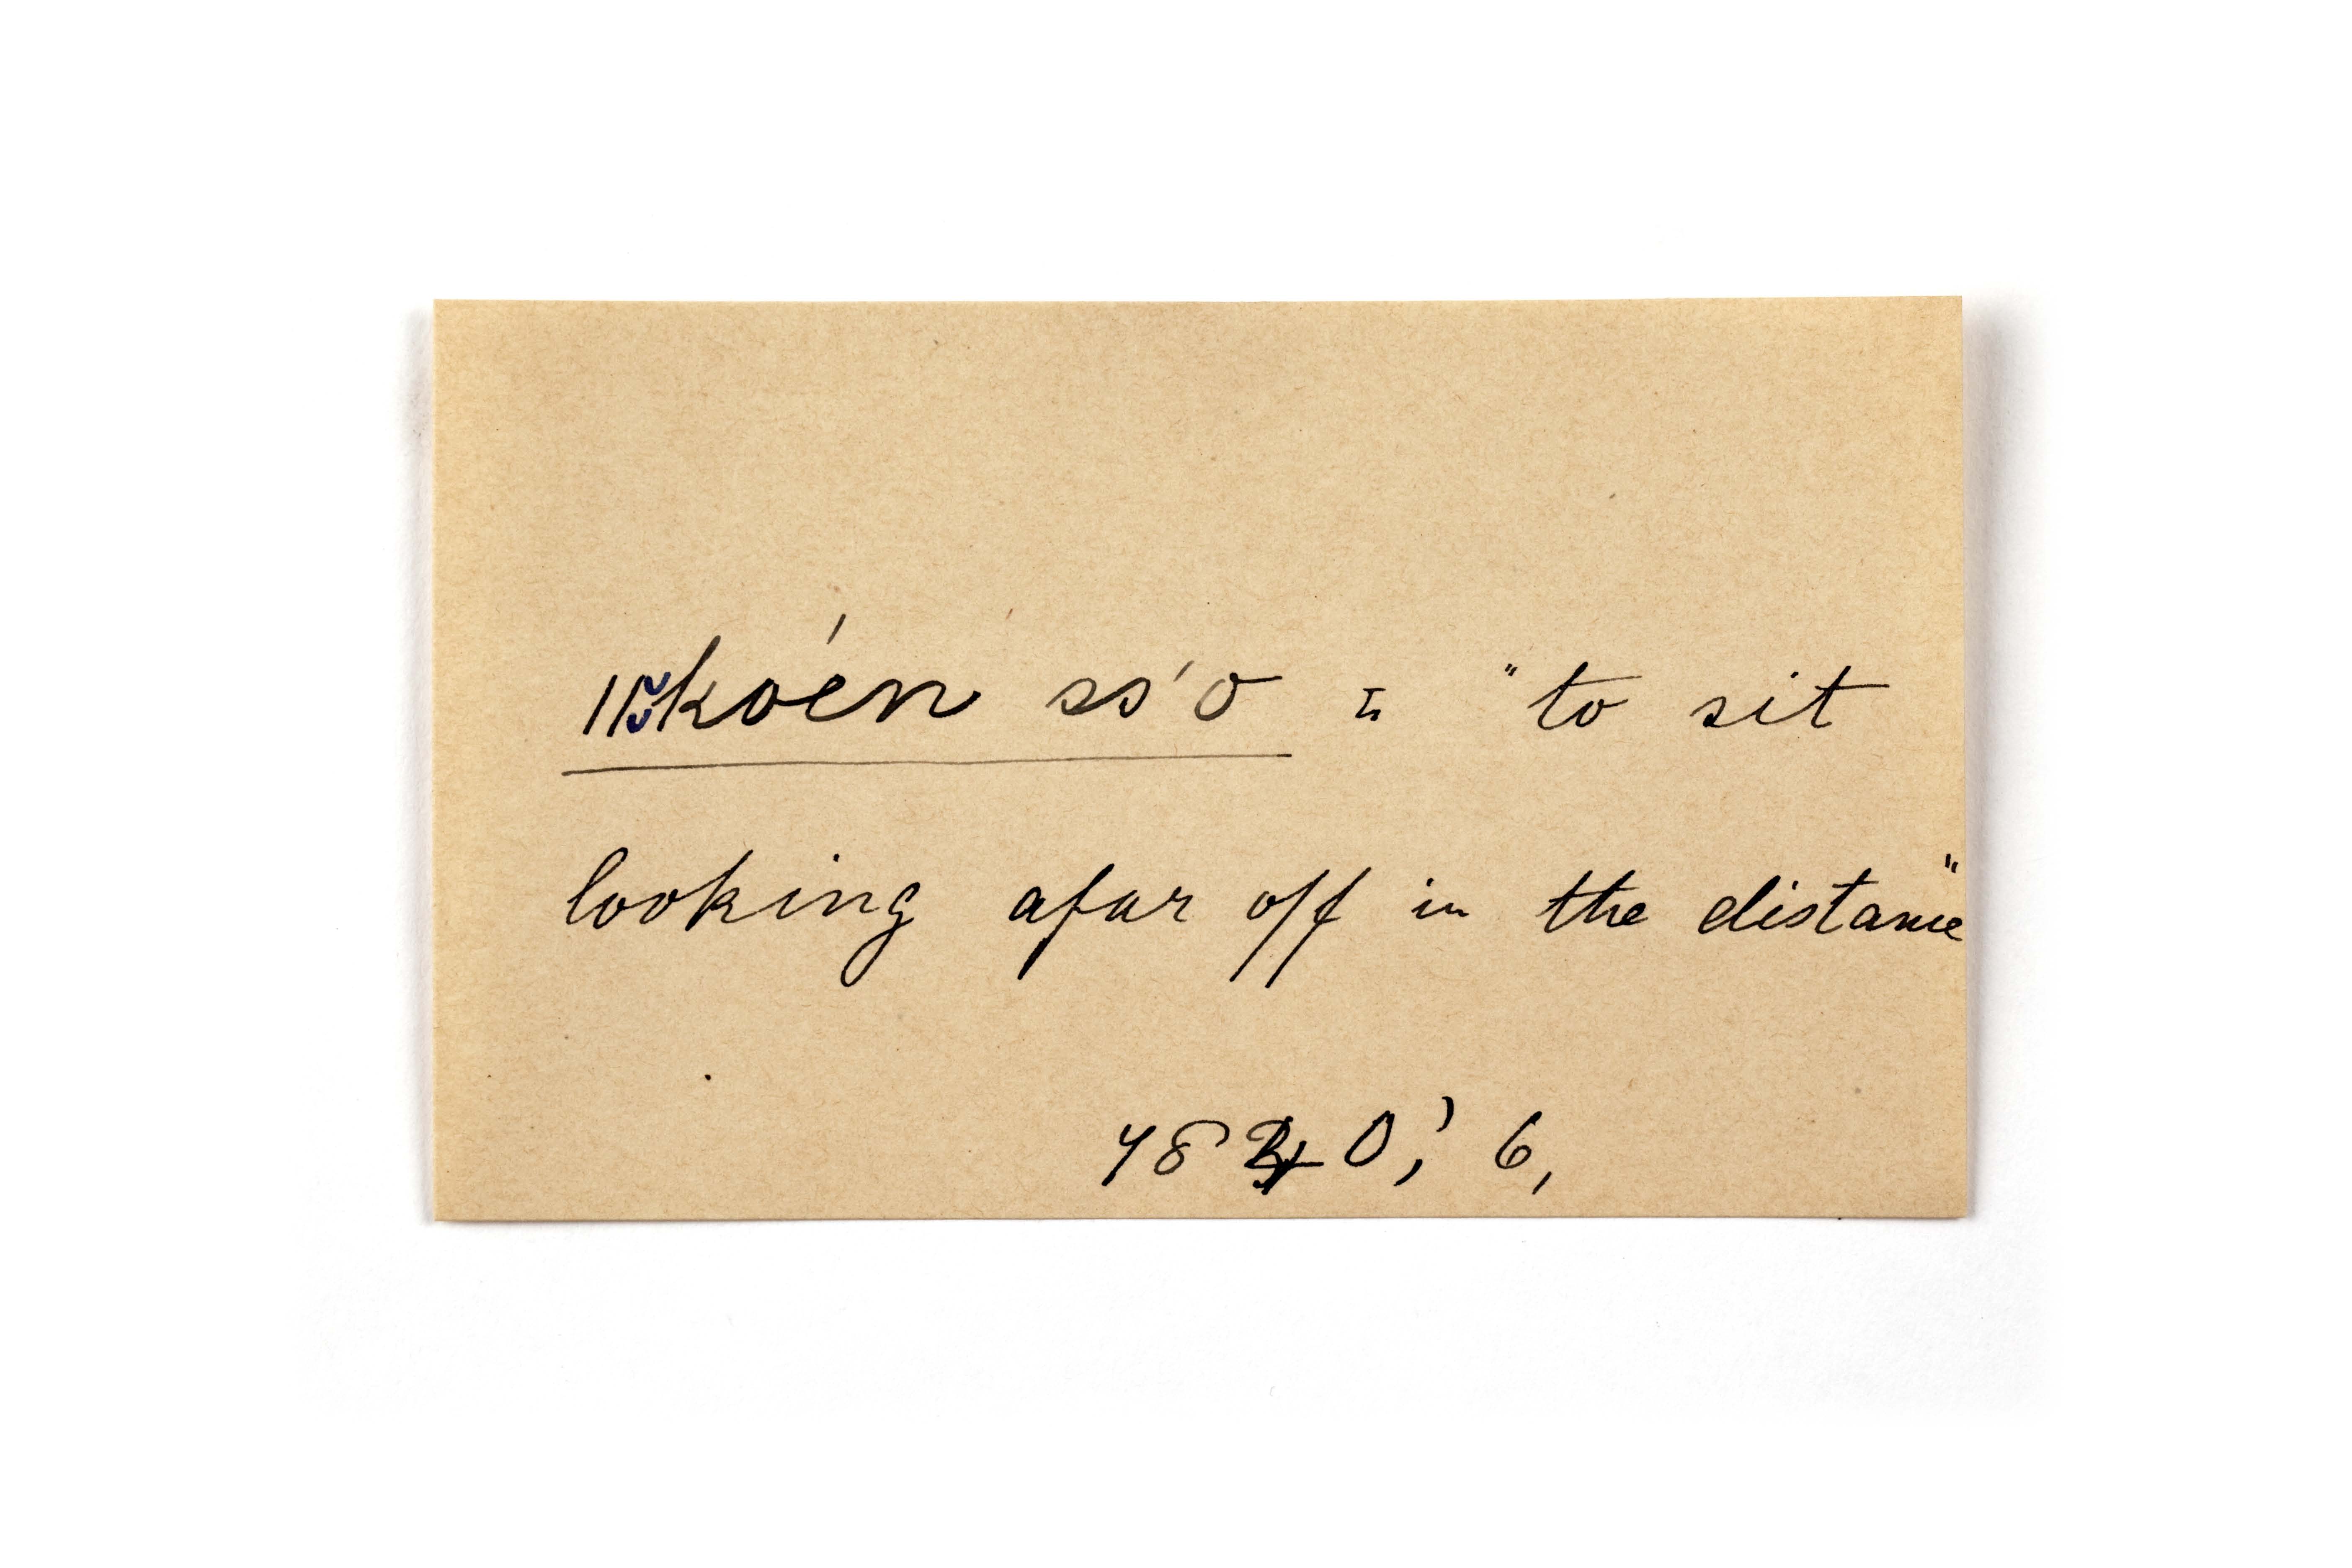 koén ss'o = "to sit
looking afar off in the distance"
6,